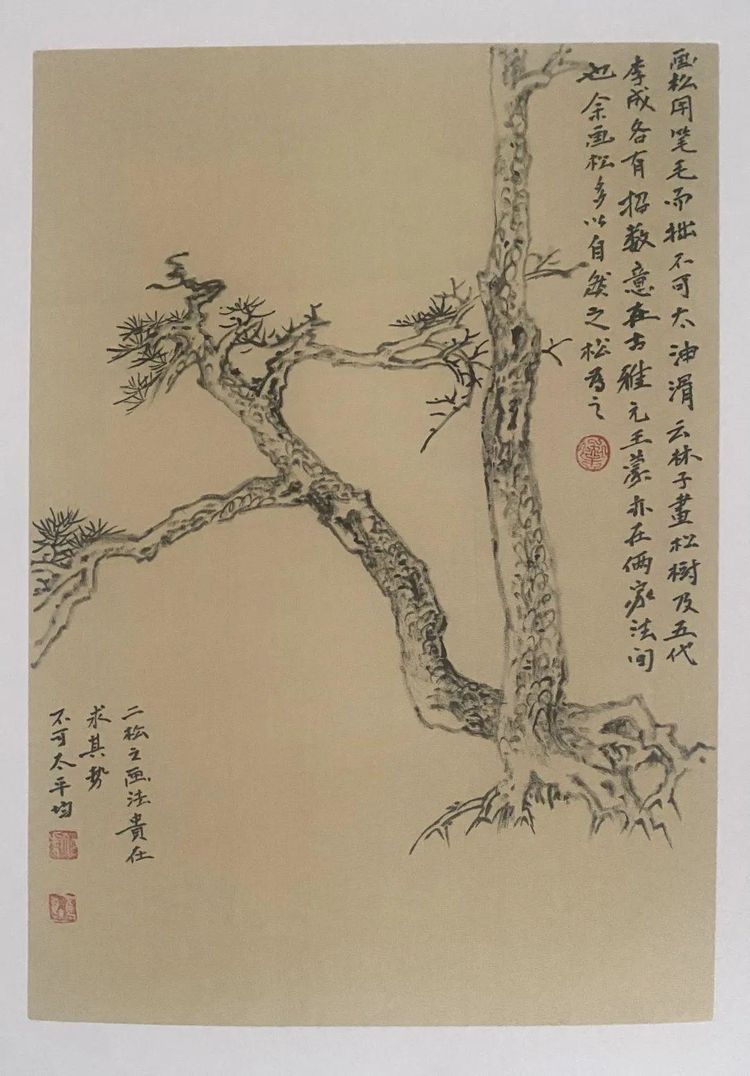 画松用笔毛而拙不可太油滑云林子畫松树及五代
李成各有招数意在古雅元王蒙亦在俩家法间
也余画松多以自然之松为之
二松之画法貴在
求其势
不可太平均